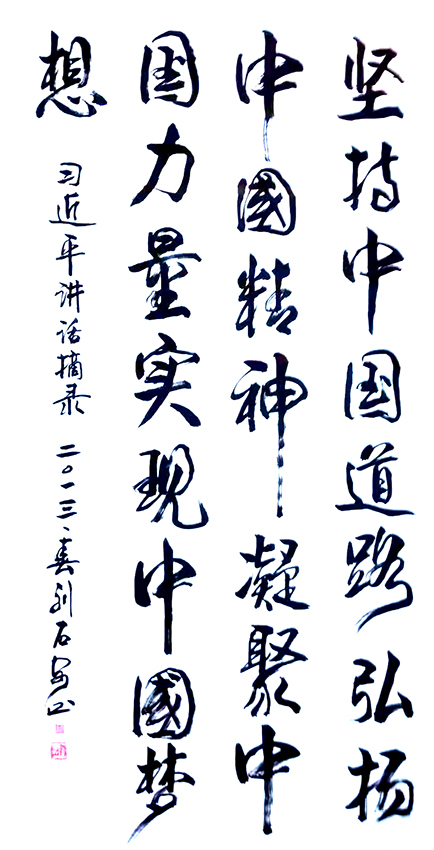 坚持中国道路弘扬
中國精神凝聚中
国力量实现中國梦
想
习近平讲话摘录 二〇一三